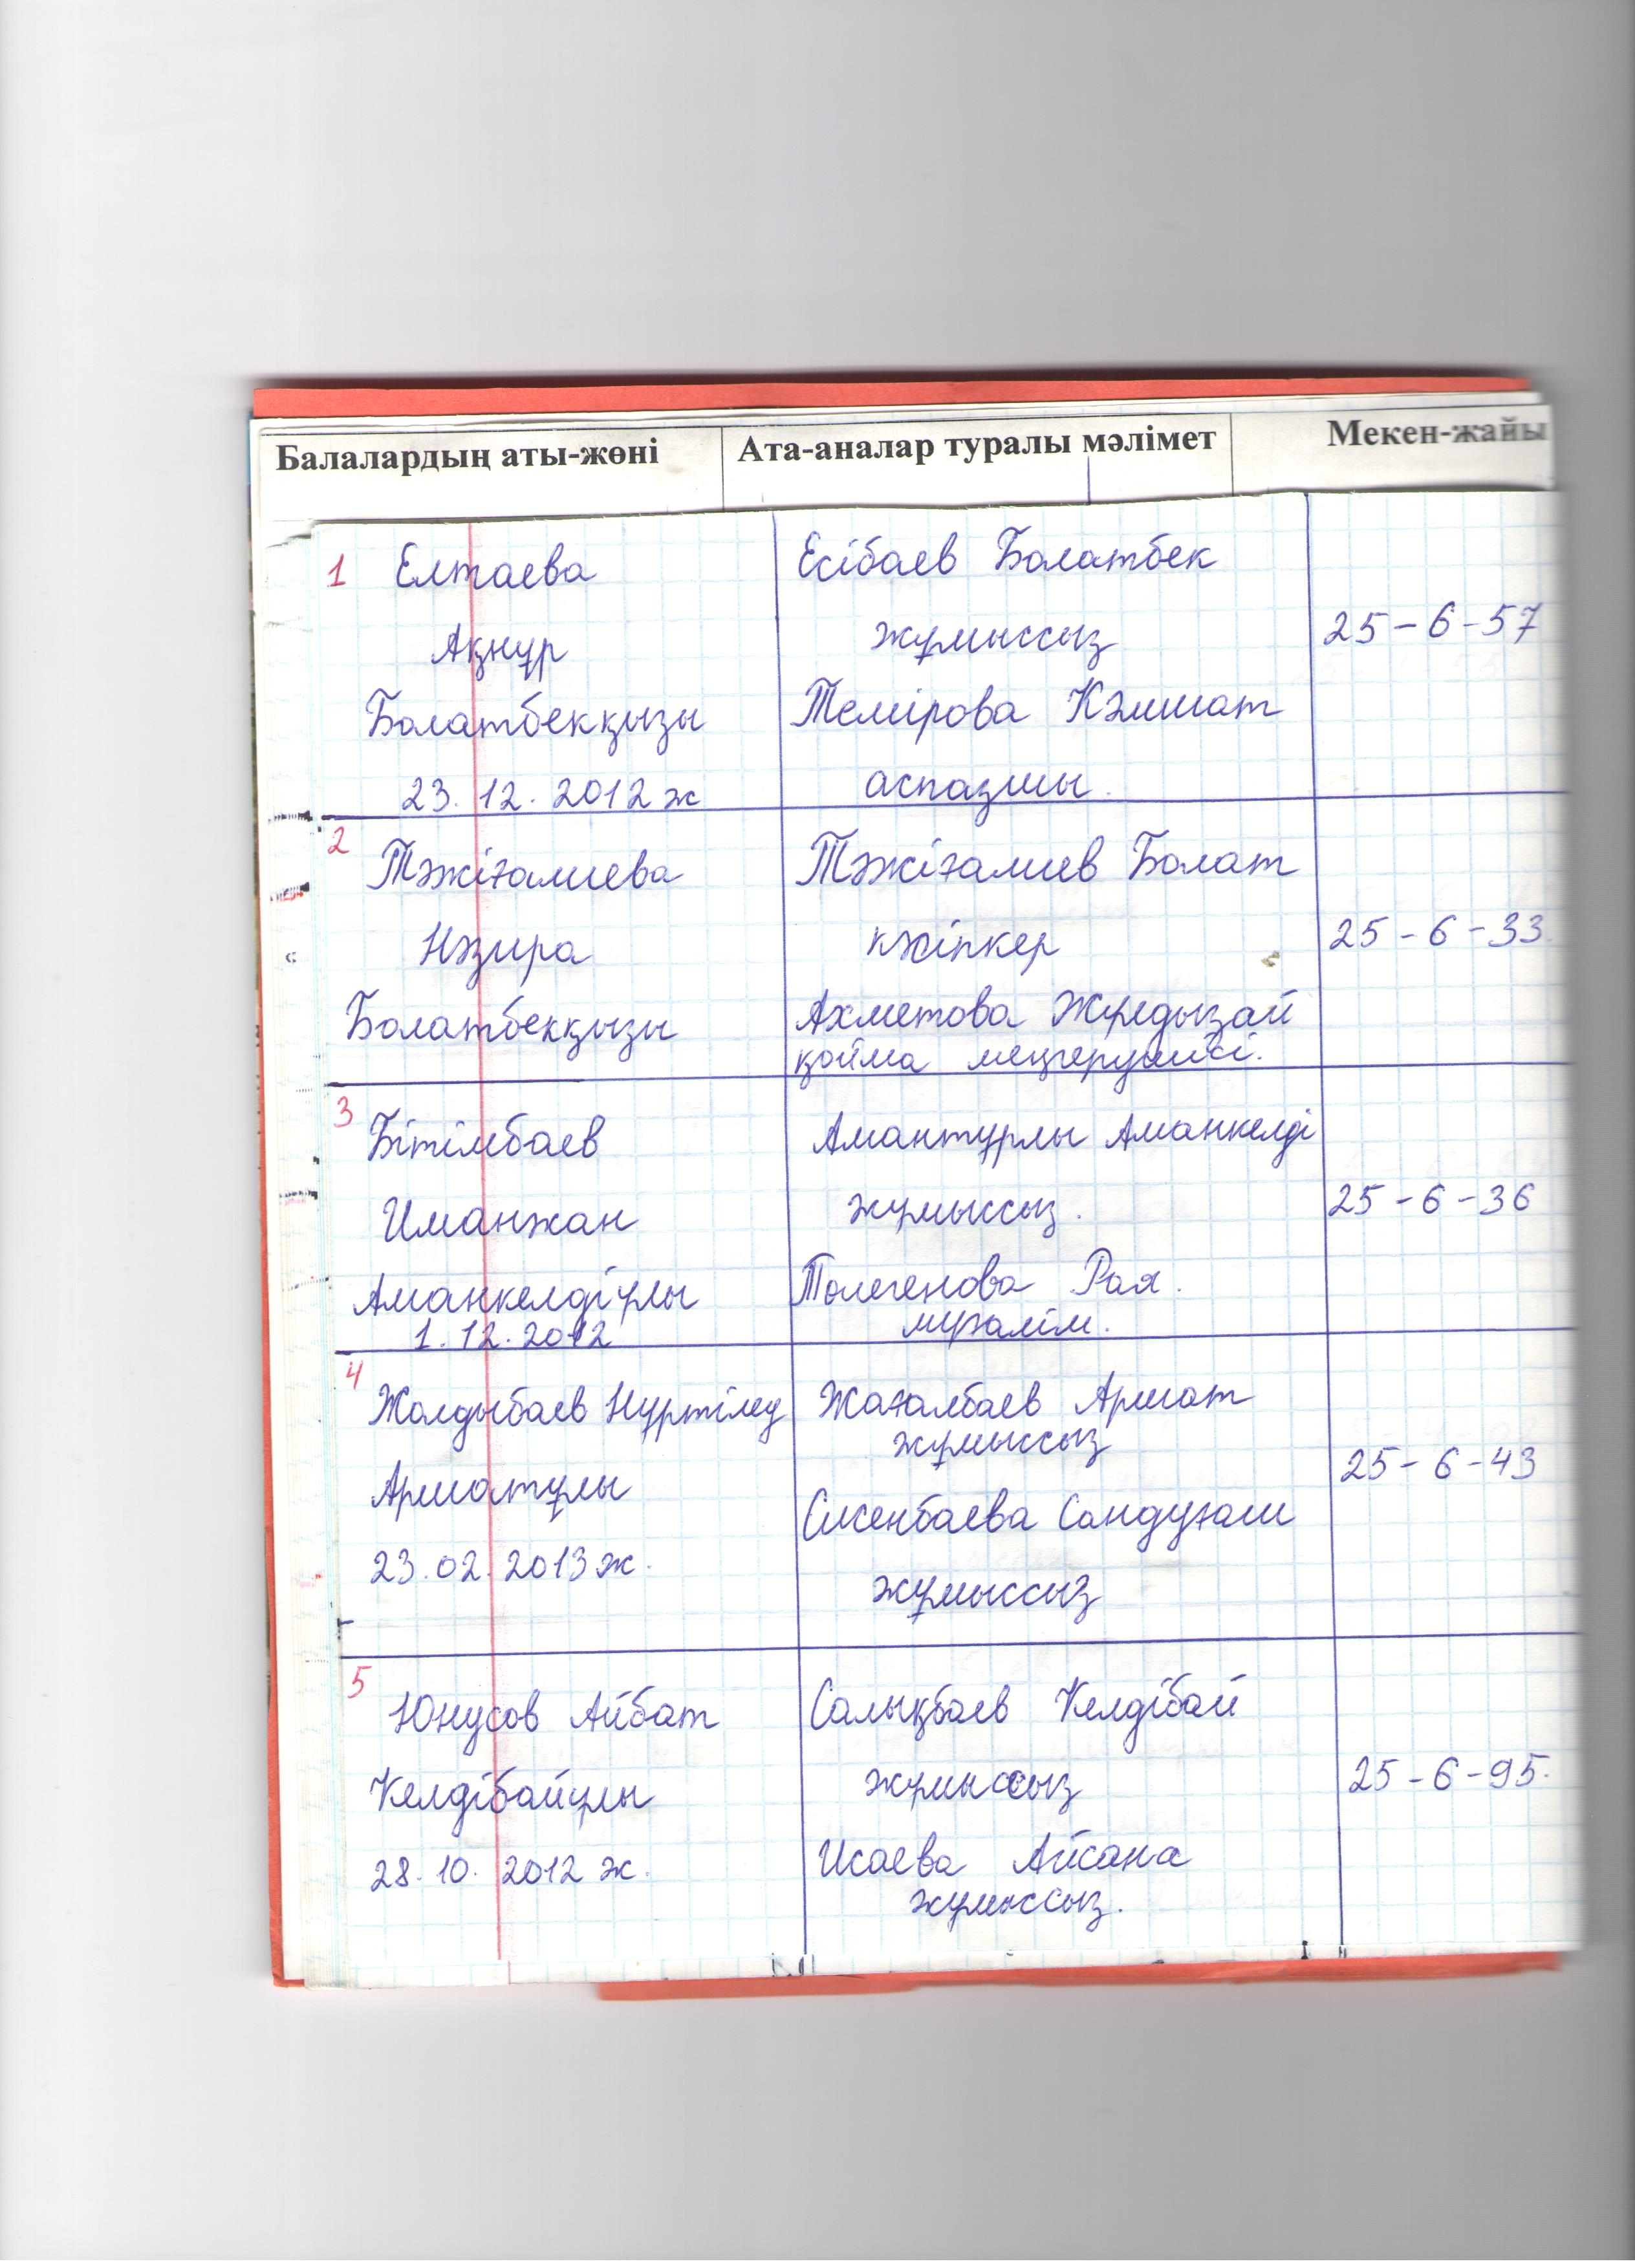 Балалардың аты-жөні
Ата-аналар туралы мәлімет
Мекен-жайы
1 Елтаева
Ақнұр
Болатбекқызы
23.12.2012 ж
Есібаев Болатбек
жұмыссыз
Темірова Кәмшат
аспазшы.
25-6-57
2
Тәжіғалиева
Нәзира
Болатбекқызы
Тәжіғалиев Болат
кәсіпкер
Ахметова Жұлдызай
қойма меңгерушісі.
25-6-33
3
Бітімбаев
Иманжан
Аманкелдіұлы
1.12.2012
Амантұрлы Аманкелді
жұмыссыз.
Төлегенова Рая.
мұғалім.
25-6-36
4
Жолдыбаев Нұртілеу
Арматұлы
23.02.2013 ж.
Жағалбаев Армат
жұмыссыз
Сисенбаева Сандуғаш
жұмыссыз
25-6-43
5
Юнусов Айбат
Келдібайұлы
28.10.2012 ж.
Салықбаев Келдібай
жұмыссыз
Исаева Айсана
жұмыссыз.
25-6-95.